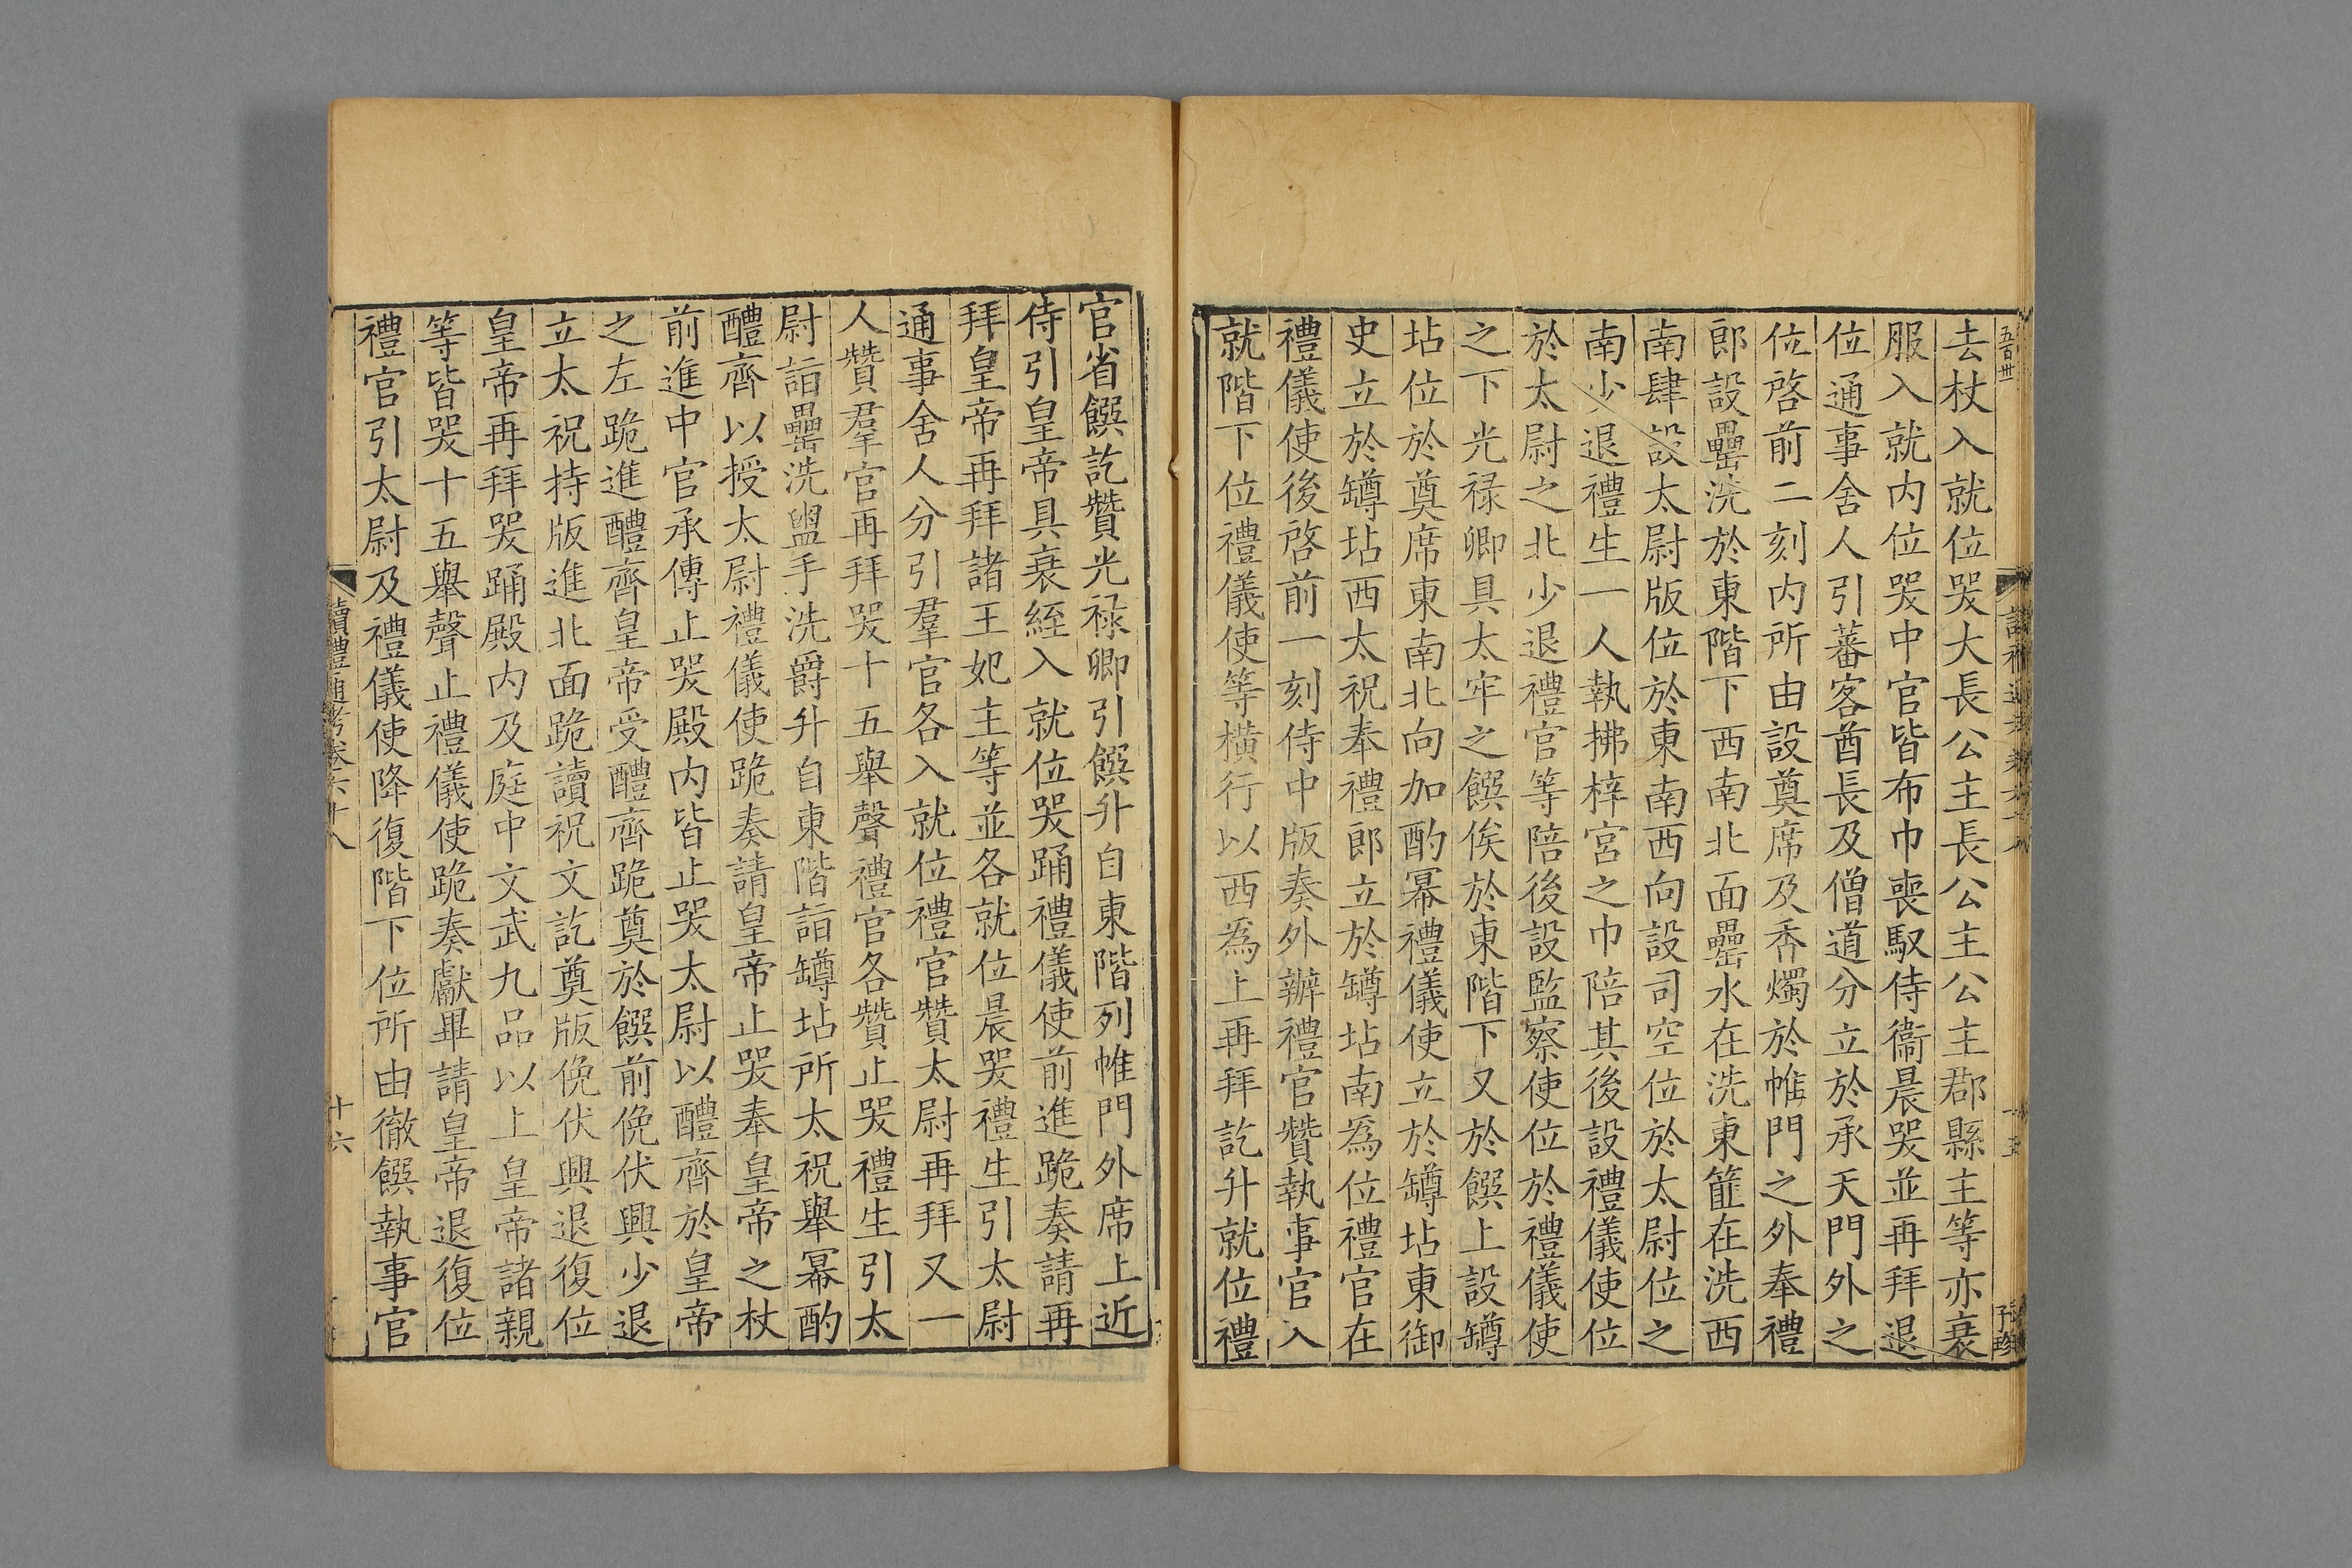 五百卅
子珍
去杖入就位哭大長公主長公主公主郡縣主等亦衰
服入就内位哭中官皆布巾喪馭侍衞晨哭並再拜退
位通事舍人引蕃客酋長及僧道分立於承天門外之
位啓前二刻内所由設奠席及香燭於帷門之外奉禮
郎設罍洗於東階下西南北面罍水在洗東篚在洗西
南肆設太尉版位於東南西向設司空位於太尉位之
南少退禮生一人執拂梓宮之巾陪其後設禮儀使位
於太尉之北少退禮官等陪後設監察使位於禮儀使
之下光禄卿具太牢之饌俟於東階下又於饌上設罇
坫位於奠席東南北向加酌冪禮儀使立於罇坫東御
史立於罇坫西太祝奉禮郎立於罇坫南爲位禮官在
禮儀使後啓前一刻侍中版奏外辦禮官贊執事官入
就階下位禮儀使等橫行以西爲上再拜訖升就位禮
官省饌訖贊光禄卿引饌升自東階列帷門外席上近
侍引皇帝具衰絰入就位哭踊禮儀使前進跪奏請再
拜皇帝再拜諸王妃主等並各就位晨哭禮生引太尉
通事舍人分引羣官各入就位禮官贊太尉再拜又一
人贊羣官再拜哭十五舉聲禮官各贊止哭禮生引太
尉詣罍洗盥手洗爵升自東階詣罇坫所太祝舉冪酌
醴齊以授太尉禮儀使跪奏請皇帝止哭奉皇帝之杖
前進中官承傳止哭殿内皆止哭太尉以醴齊於皇帝
之左跪進醴齊皇帝受醴齊跪奠於饌前俛伏興少退
立太祝持版進北面跪讀祝文訖奠版俛伏興退復位
皇帝再拜哭踊殿内及庭中文武九品以上皇帝諸親
等皆哭十五舉聲止禮儀使跪奏獻畢請皇帝退復位
禮官引太尉及禮儀使降復階下位所由徹饌執事官
讀禮通考卷六十八
十六